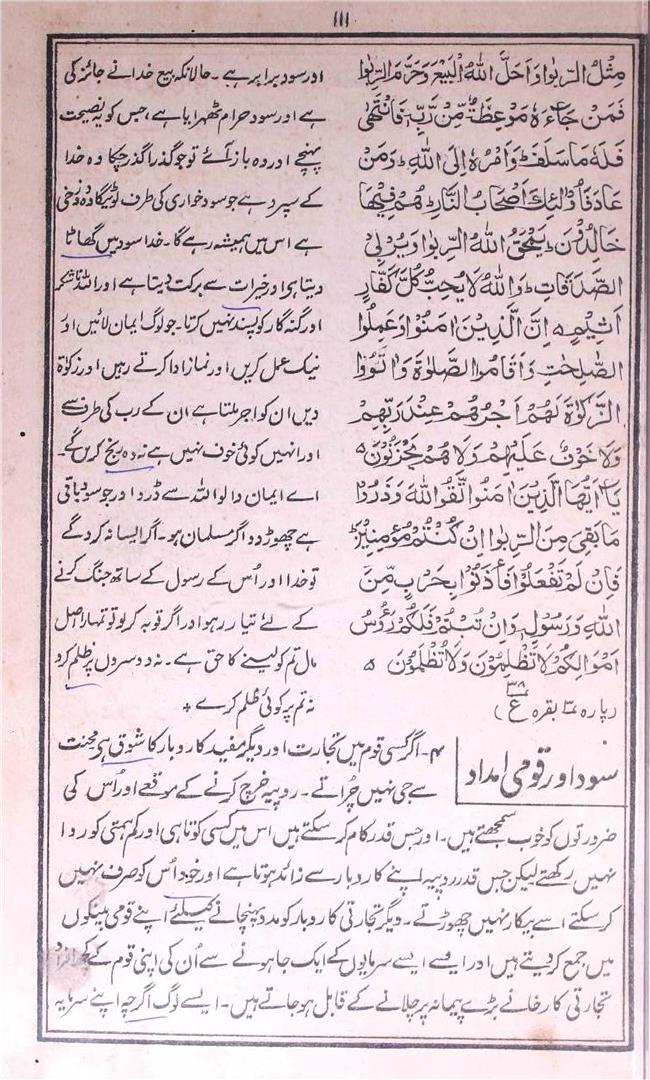 ١١١
مِثْلُ الرِّبٰوا وَاَحَلَّ اللّٰهُ الْبَيْعَ وَحَرَّمَ الرِّبٰوا
فَمَنْ جَآءَهٗ مَوْعِظَةٌ مِّنْ رَّبِّهٖ فَانْتَهٰى
فَلَهٗ مَا سَلَفَ وَاَمْرُهٗ اِلَى اللّٰهِ وَمَنْ
عَادَ فَاُولٰٓئِكَ اَصْحَابُ النَّارِ هُمْ فِيْهَا
خَالِدُوْنَ يَمْحَقُ اللّٰهُ الرِّبٰوا وَيُرْبِى
الصَّدَقَاتِ وَاللّٰهُ لَا يُحِبُّ كُلَّ كَفَّارٍ
اَثِيْمٍ ه اِنَّ الَّذِيْنَ اٰمَنُوْا وَعَمِلُوا
الصّٰلِحٰتِ وَاَقَامُوا الصَّلٰوةَ وَاٰتَوُا
الزَّكٰوةَ لَهُمْ اَجْرُهُمْ عِنْدَ رَبِّهِمْ
وَلَا خَوْفٌ عَلَيْهِمْ وَلَا هُمْ يَحْزَنُوْنَ ه
يَا اَيُّهَا الَّذِيْنَ اٰمَنُوا اتَّقُوا اللّٰهَ وَذَرُوْا
مَا بَقِيَ مِنَ الرِّبٰوا اِنْ كُنْتُمْ مُؤْمِنِيْنَ
فَاِنْ لَّمْ تَفْعَلُوْا فَاْذَنُوْا بِحَرْبٍ مِّنَ
اللّٰهِ وَرَسُوْلِهٖ وَاِنْ تُبْتُمْ فَلَكُمْ رَءُوْسُ
اَمْوَالِكُمْ لَا تَظْلِمُوْنَ وَلَا تُظْلَمُوْنَ ه
(پارہ ۳ بقرہ ع ۳۸)
اور سود برابر ہے۔ حالانکہ بیع خدا نے جائز کی
ہے اور سود حرام ٹھہرایا ہے، جس کو یہ نصیحت
پہنچے اور وہ باز آئے تو جو گذرا گذر چکا وہ خدا
کے سپرد ہے جو سود خواری کی طرف لوٹیگا وہ دوزخی
ہے اس میں ہمیشہ رہے گا۔ خدا سود میں گھاٹا
دیتا ہی اور خیرات سے برکت دیتا ہے اور اللہ ناشکر
اور گنہ گار کو پسند نہیں کرتا۔ جو لوگ ایمان لائیں اور
نیک عمل کریں اور نماز ادا کرتے رہیں اور زکوٰۃ
دیں ان کو اجر ملتا ہے ان کے رب کی طرف سے
اور انہیں کوئی خوف نہیں ہے نہ وہ رنج کریں گے۔
اے ایمان والو اللہ سے ڈرو اور جو سود باقی
ہے چھوڑ دو اگر مسلمان ہو۔ اگر ایسا نہ کرو گے
تو خدا اور اُس کے رسول کے ساتھ جنگ کرنے
کے لئے تیار رہو اور اگر توبہ کر لو تو تمہارا اصل
مال تم کو لینے کا حق ہے۔ نہ دوسروں پر ظلم کرو
نہ تم پر کوئی ظلم کرے +
سود اور قومی امداد
۴۔ اگر کسی قوم میں تجارت اور دیگر مفید کاروبار کا شوق ہو محنت
سے جی نہیں چُراتے۔ روپیہ خرچ کرنے کے موقعے اور اُس کی
ضرورتوں کو خوب سمجھتے ہیں۔ اور جس قدر کام کر سکتے ہیں اس میں کسی کوتاہی اور کم ہمتی کو روا
نہیں رکھتے لیکن جس قدر روپیہ اپنے کاروبار سے زائد ہوتا ہے اور خود اُس کو صرف نہیں
کر سکتے اسے بیکار نہیں چھوڑتے۔ دیگر تجارتی کاروبار کو مدد پہنچانے کیلئے اپنے قومی بینکوں
میں جمع کر دیتے ہیں اور ایسے ایسے سرمایوں کے ایک جا ہونے سے اُن کی اپنی قوم کے افراد
تجارتی کارخانے بڑے پیمانہ پر چلانے کے قابل ہو جاتے ہیں۔ ایسے لوگ اگرچہ اپنے سرمایہ